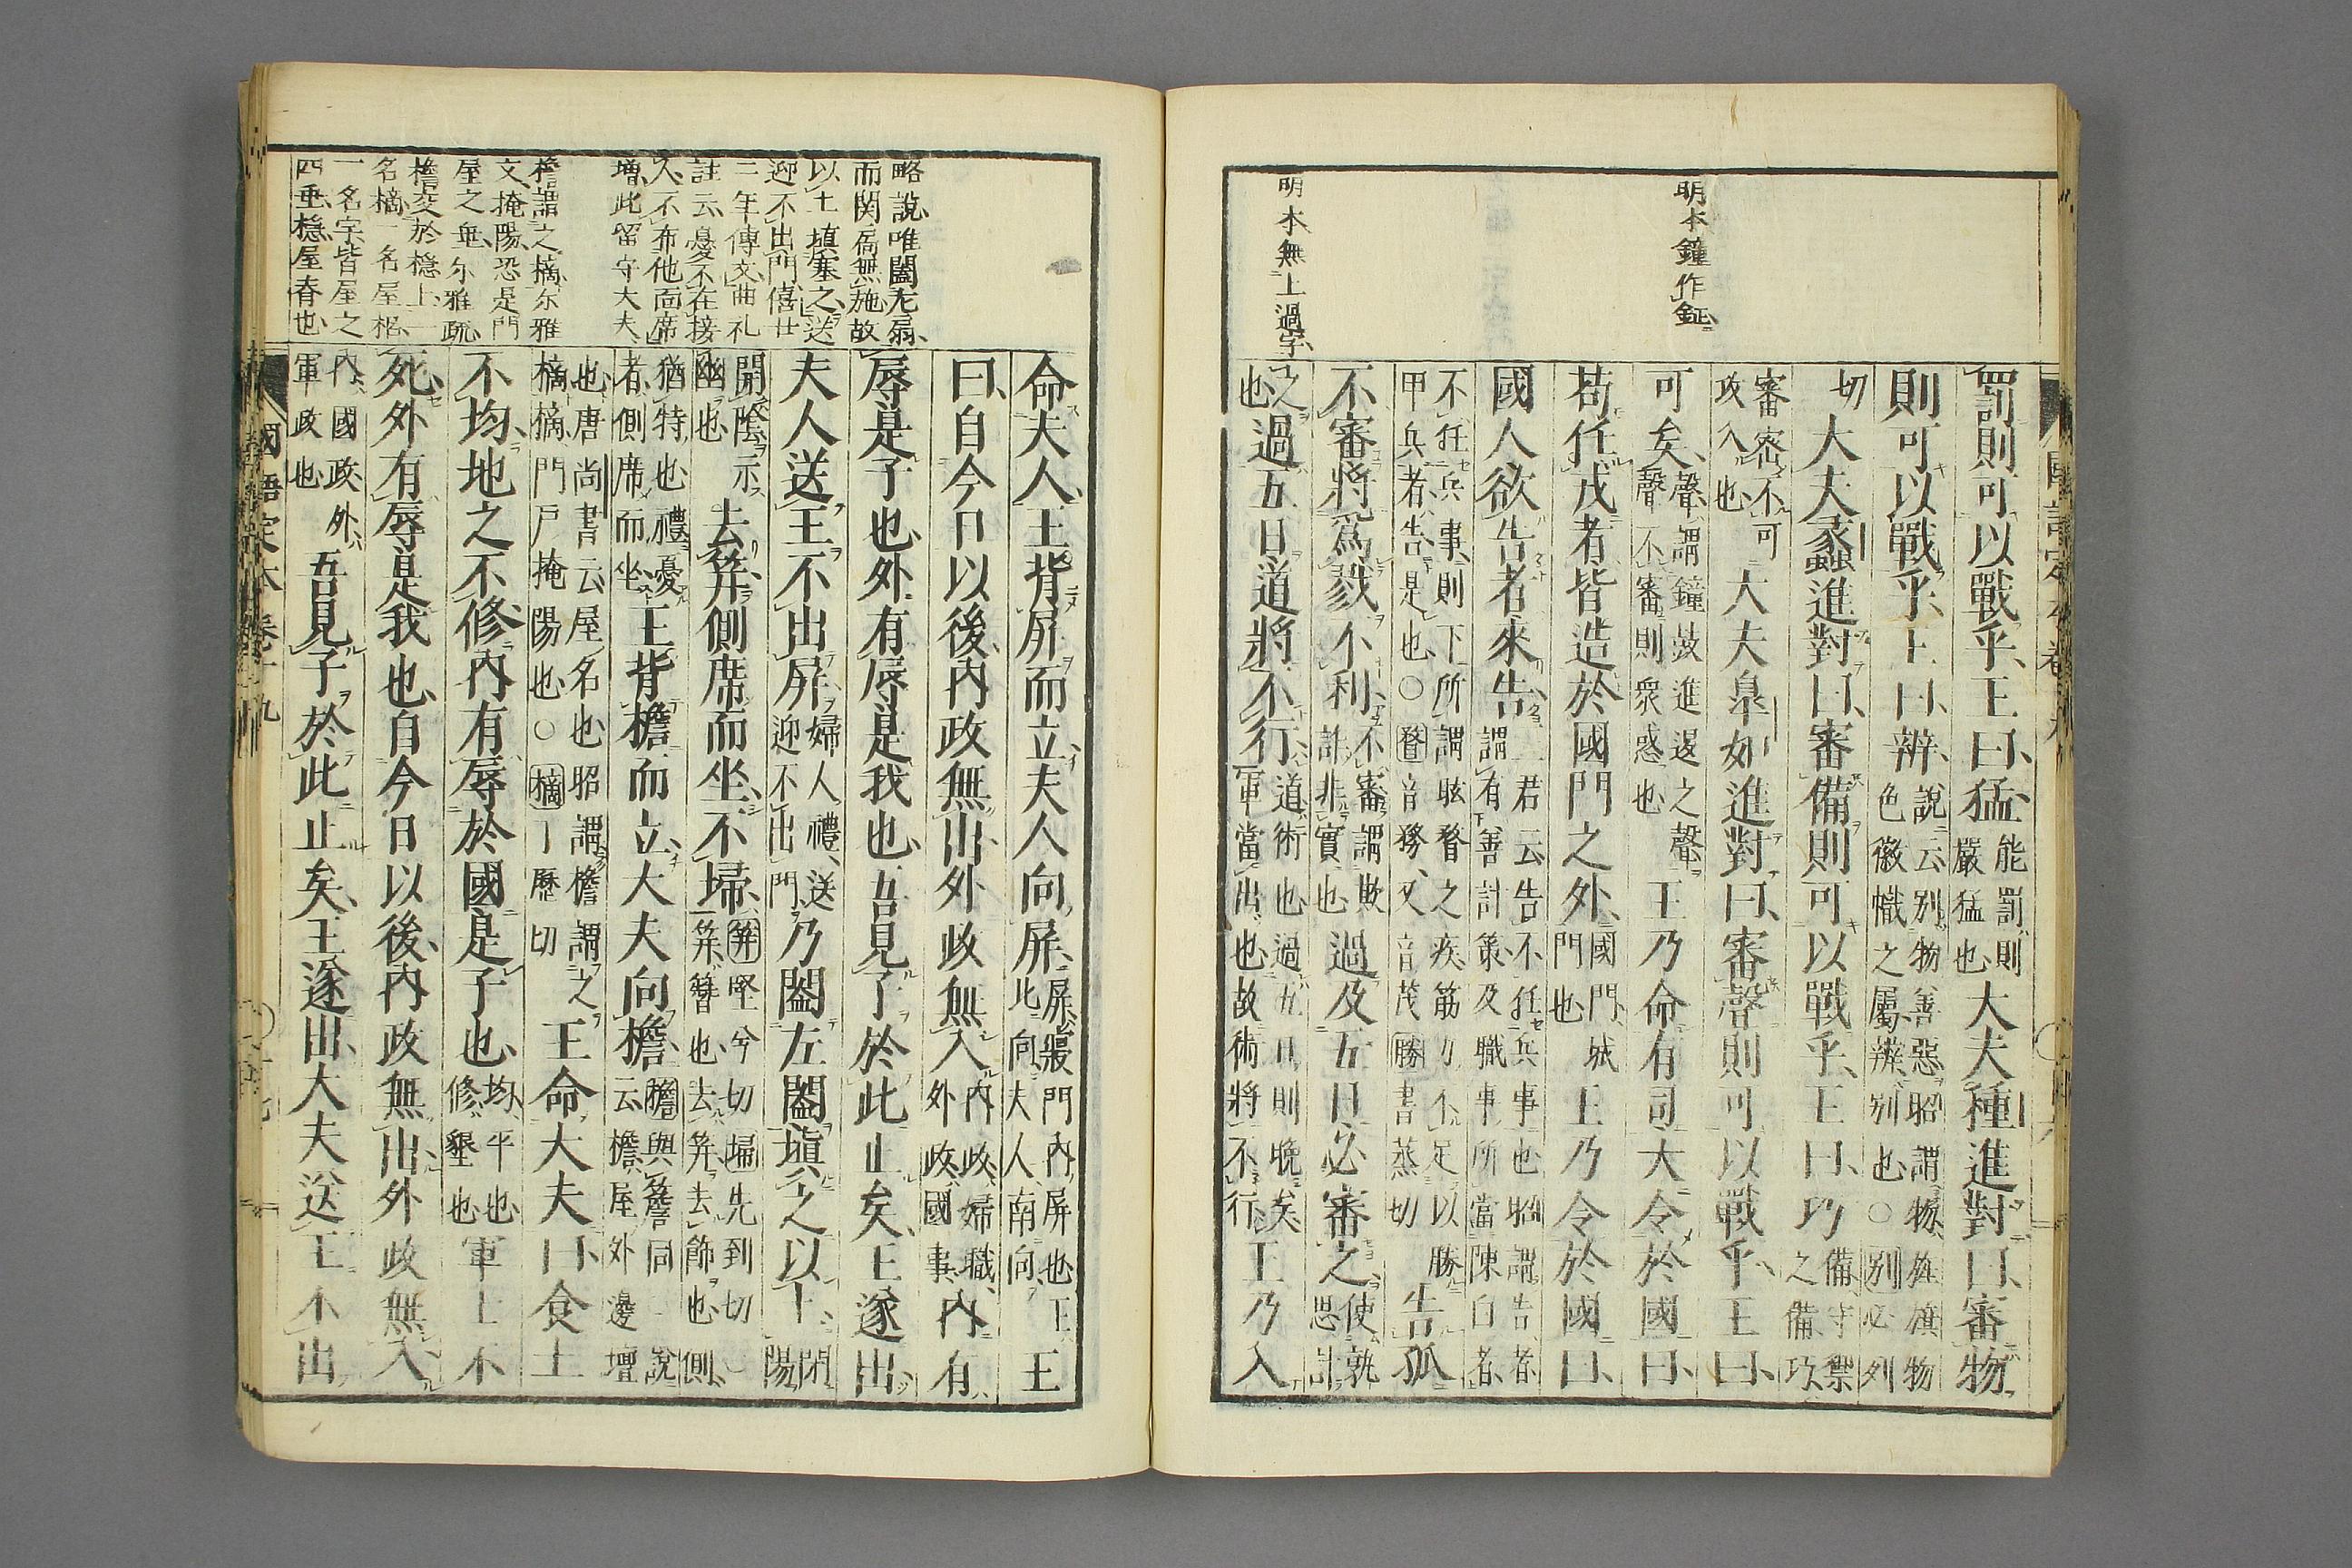 明本鐘作鉦
明本無上過字
罰則可以戰乎王曰猛能罰則嚴猛也大夫種進對曰審物
則可以戰乎王曰辨說云別物善惡昭謂物旌旗物色徽幟之屬辨別也○別必列
切大夫蠡進對曰審備則可以戰乎王曰巧備守禦之備巧
審密不可攻入也大夫皐如進對曰審聲則可以戰乎王曰
可矣聲謂鐘鼓進退之聲聲不審則衆惑也王乃命有司大令於國曰
苟任戎者皆造於國門之外國門城門也王乃令於國曰
國人欲告者來告二君云告不任兵事也昭謂告者謂有善計策及職事所當陳白者
不任兵事則下所謂眩瞀之疾筋力不足以勝甲兵者告是也○瞀音務又音茂勝書蒸切告孤
不審將爲戮不利不審謂欺詐非實也過及五日必審之使孰思計
之也過五日道將不行道術也過五日則晚矣軍當出也故術將不行王乃入
略說唯闔左扇
而関扇無施故
以土塡塞之送
迎不出門僖廿
二年傳文曲礼
註云憂不在接
人不布他面席
增此留守大夫
檐謂之樀尓雅
文掩陽恐是門
屋之垂尓雅疏
檐交於檼上一
名樀一名屋梠
一名宇皆屋之
四垂檼屋脊也
命夫人王背屏而立夫人向屏屏寢門內屏也王北向夫人南向王
曰自今日以後內政無出外政無入內政婦職外政國事內有
辱是子也外有辱是我也吾見子於此止矣王遂出
夫人送王不出屏婦人禮送迎不出門乃闔左闔塡之以土閉陽
開陰示幽也去筓側席而坐不埽筓堅兮切埽先到切筓簪也去筓去飾也側
猶特也禮憂者側席而坐王背檐而立大夫向檐檐與簷同說云檐屋外邊壇
也唐尚書云屋名也昭謂檐謂之樀樀門戶掩陽也○樀丁歷切王命大夫曰食土
不均地之不修內有辱於國是子也均平也修墾也軍士不
死外有辱是我也自今日以後內政無出外政無入
內國政外軍政也吾見子於此止矣王遂出大夫送王不出
國語定本卷十九